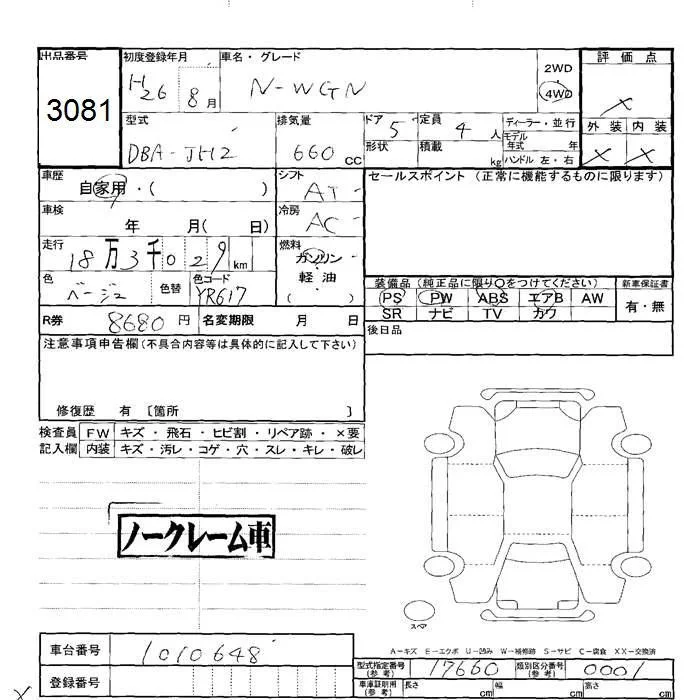 出品番号 初度登録年月 車名・グレード 2WD 評価点
3081 H26 8月 N-WGN 4WD ×
型式 排気量 ドア 5 定員 4人 ディーラー・並行 外装 内装
DBA-JH2 660cc 形状 積載 kg モデル年式 年 × ×
ハンドル 左・右
車歴 シフト セールスポイント (正常に機能するものに限ります)
自家用・( ) AT
車検 冷房
年 月( 日) AC
走行 燃料
18万3千029km ガソリン
色 色替 色コード 軽油
ベージュ YR617 ( )
装備品 (純正品に限り○をつけてください) 新車保証書
PS PW ABS エアB AW 有・無
SR ナビ TV カワ
R券 8680円 名変期限 月 日 後日品
注意事項申告欄(不具合内容等は具体的に記入して下さい)
修復歴 有 〔箇所 〕
検査員 FW キズ・飛石・ヒビ割・リペア跡・×要
記入欄 内装 キズ・汚レ・コゲ・穴・スレ・キレ・破レ
ノークレーム車
スペア
A-キズ E-エクボ U-凹み W-補修跡 S-サビ C-腐食 XX-交換済
車台番号 1010648 型式指定番号(参考) 17660 類別区分番号(参考) 0001
登録番号 車庫証明用(参考) 長さ cm 幅 cm 高さ cm